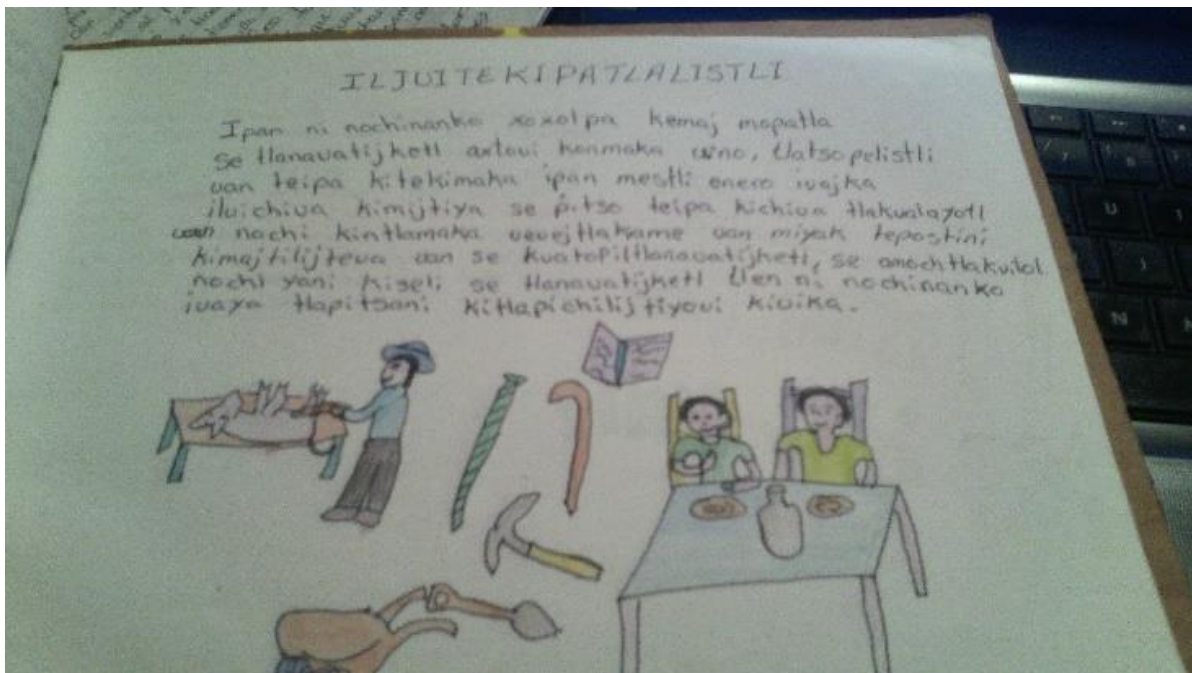 ILJUITEKIPATLALISTLI
Ipan ni nochinanko xoxolpa kemaj mopatla
se tlanauatijketl axtoui konmaka uino, tlatsopelistli
uan teipa kitekimaka ipan mestli enero iuajka
iluichiua kimijtiya se pitso teipa kichiua tlakualayotl
uan nochi kintlamaka ueuejtlakame uan miyak tepostini
kimajtilijteua uan se kuatopiltlanauatijketl, se amochtlakuilol
nochi yani kiseli se tlanauatijketl tlen ni nochinanko
iuaya tlapitsani kitlapichilijtiyoui kiuika.